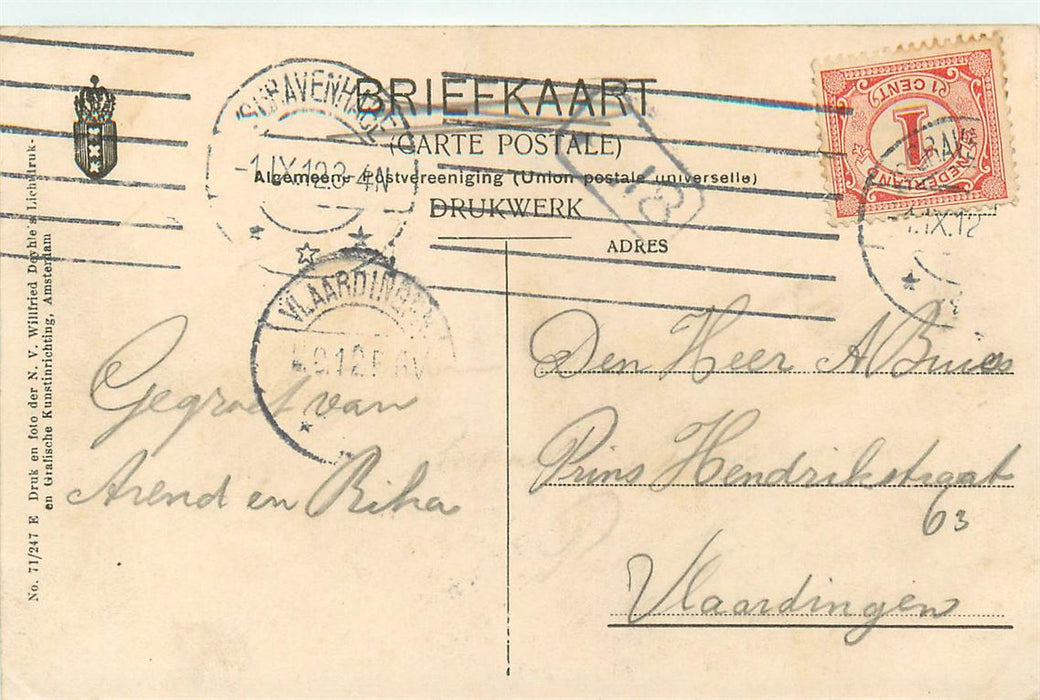 BRIEFKAART
(CARTE POSTALE)
Algemeene Postvereeniging (Union postale universelle)
DRUKWERK
ADRES
No. 71/247 E Druk en foto der N. V. Willfried Deyhle's Lichtdruk-
en Grafische Kunstinrichting, Amsterdam
1 CENT
1
NEDERLAND
'SGRAVENHAGE
1.IX.12 3-4N
VLAARDINGEN
4.9.12.
1.IX.12
Gegroet van
Arend en
Den Heer A
Prins Hendrikstraat
63
Vlaardingen